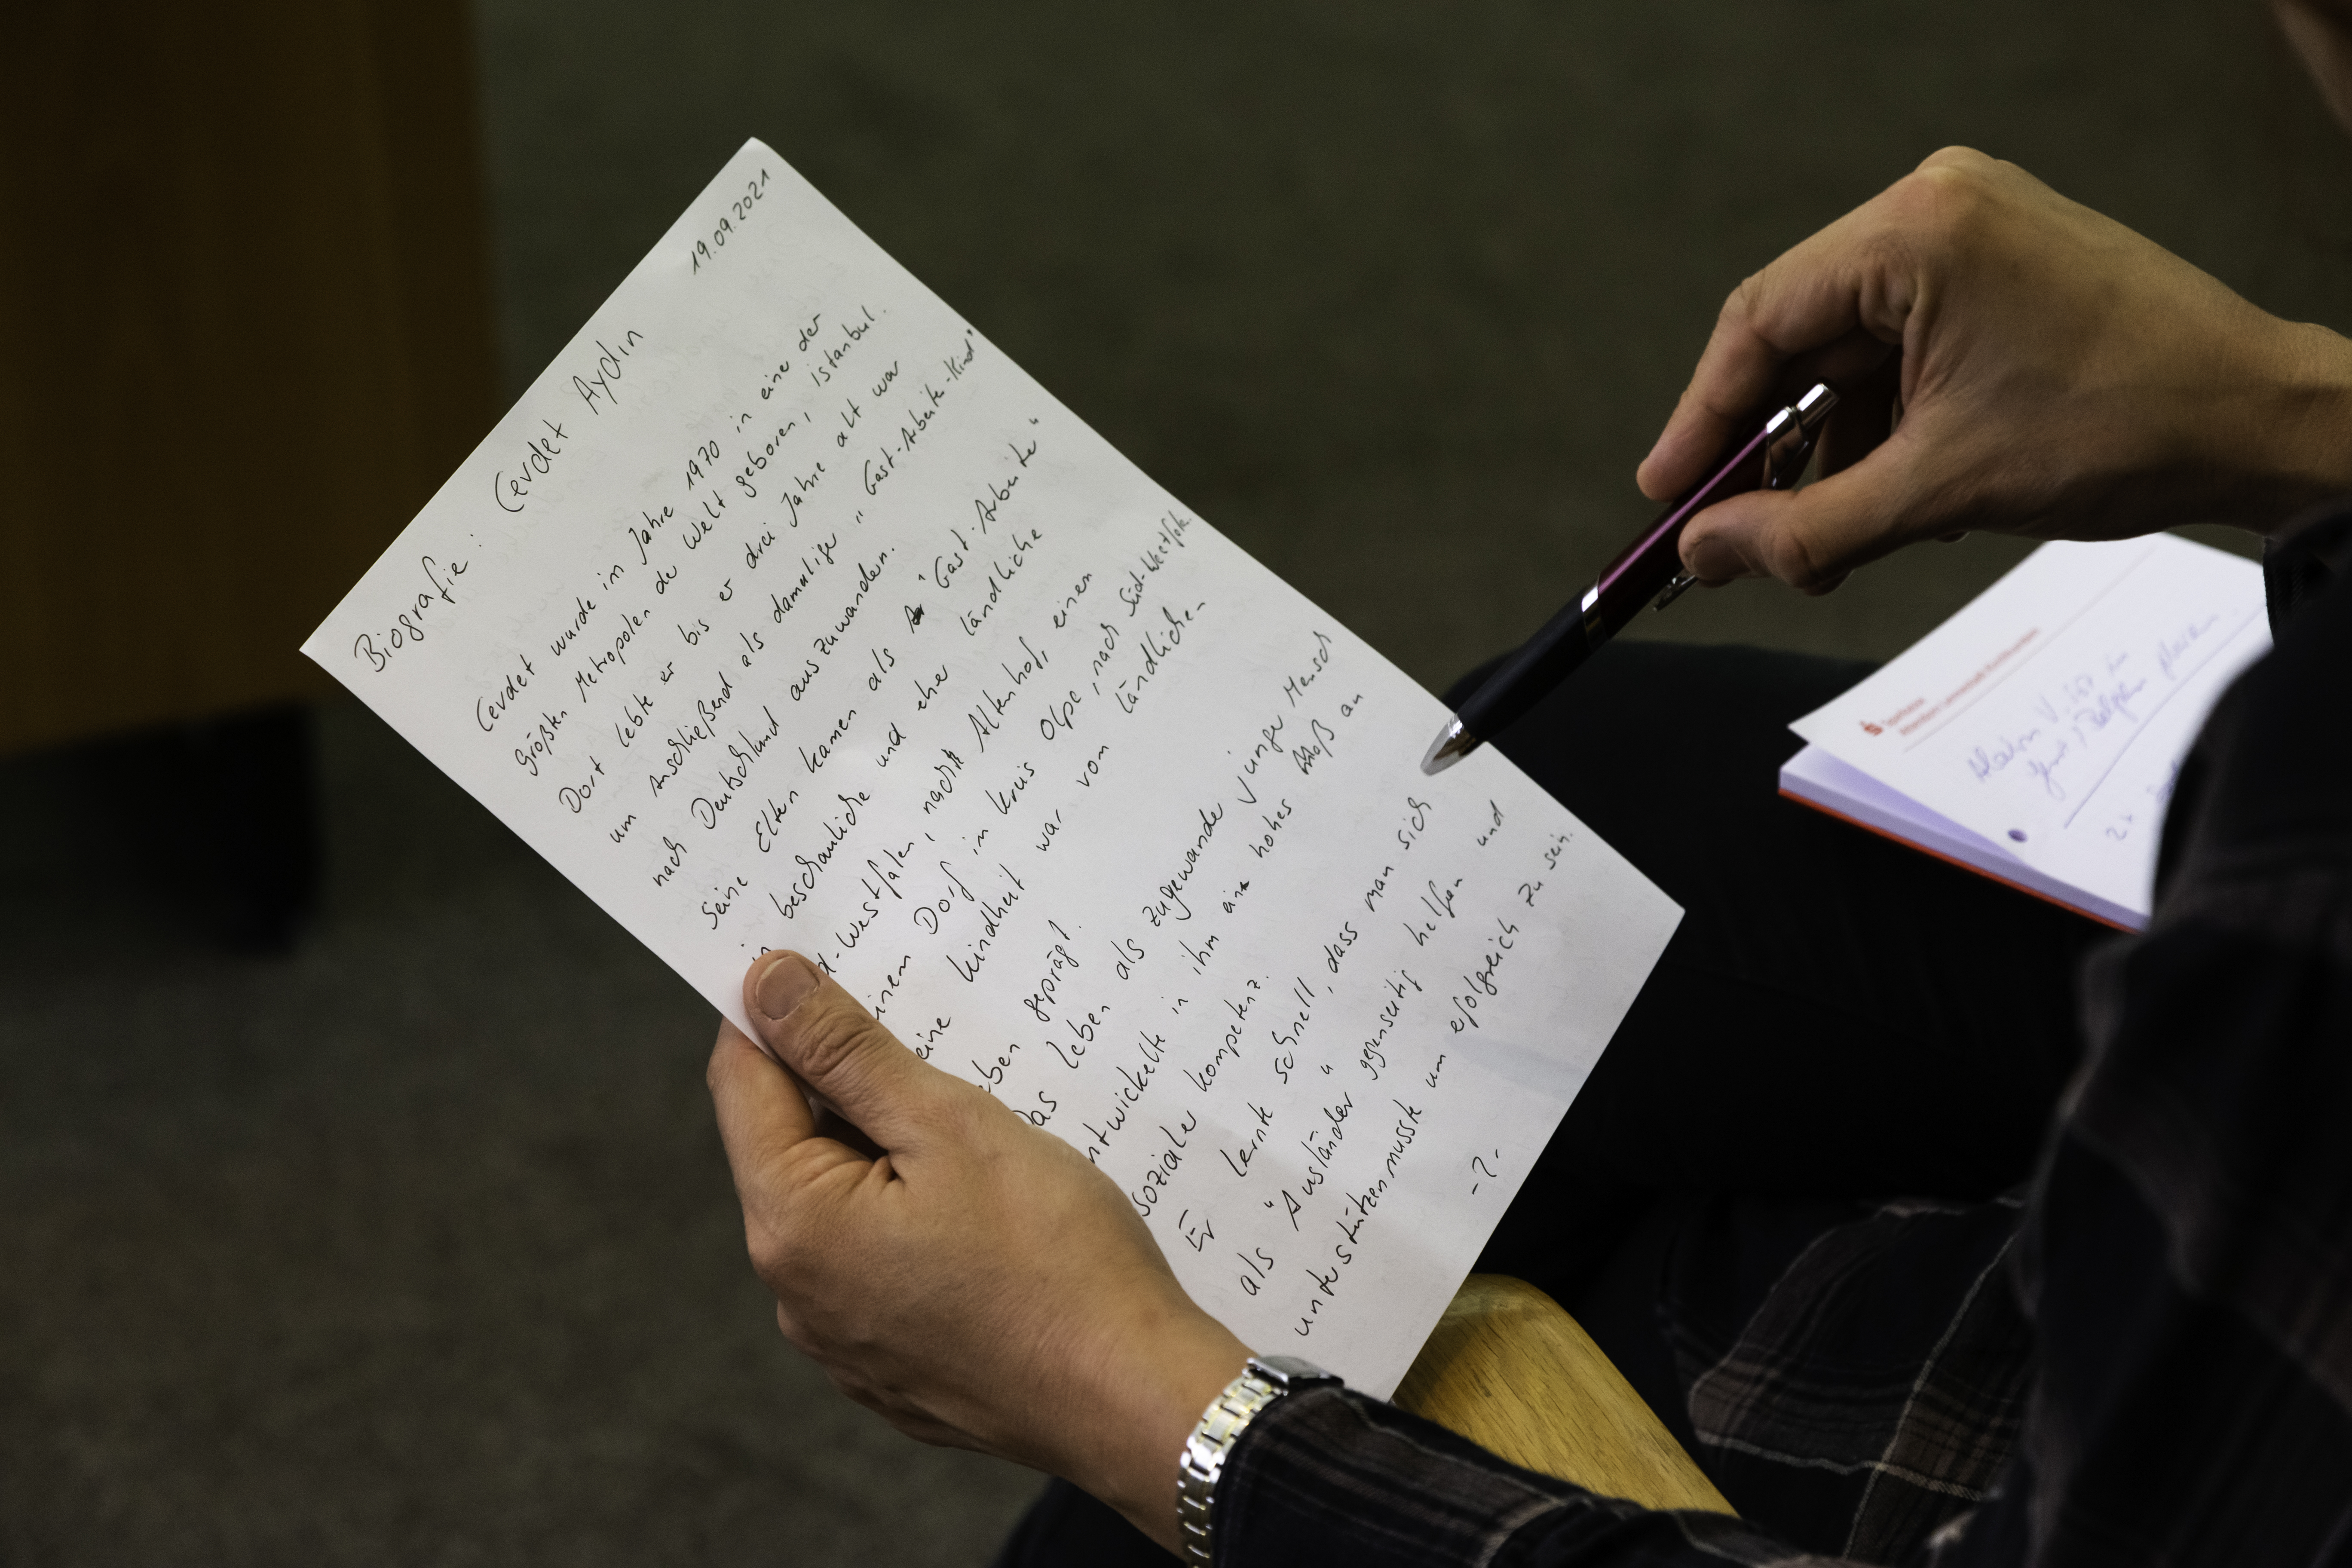 19.09.2021
Biografie: Cevdet Aydin
Cevdet wurde im Jahre 1970 in eine der
größten Metropolen der Welt geboren, istanbul.
Dort lebte er bis er drei Jahre alt war
um Anschließend als damalige „Gast-Arbeite-Kind"
nach Deutschland auszuwandern.
Seine Eltern kamen als "Gast-Arbeite"
in beschauliche und eher ländliche
d-Westfalen, nach Altenhof, einen
einem Dorf in Kreis Olpe, nach Süd-Westfale.
eine Kindheit war vom Ländlichen
eben geprägt.
Das Leben als zugewande junger Mensch
ntwickelte in ihm ein hohes Maß an
sozialer Kompetenz.
Er lernte schnell, dass man sich
als "Ausländer" gegenseitig helfen und
unterstützen musste um efolgreich zu sein.
-2-
V. ist in